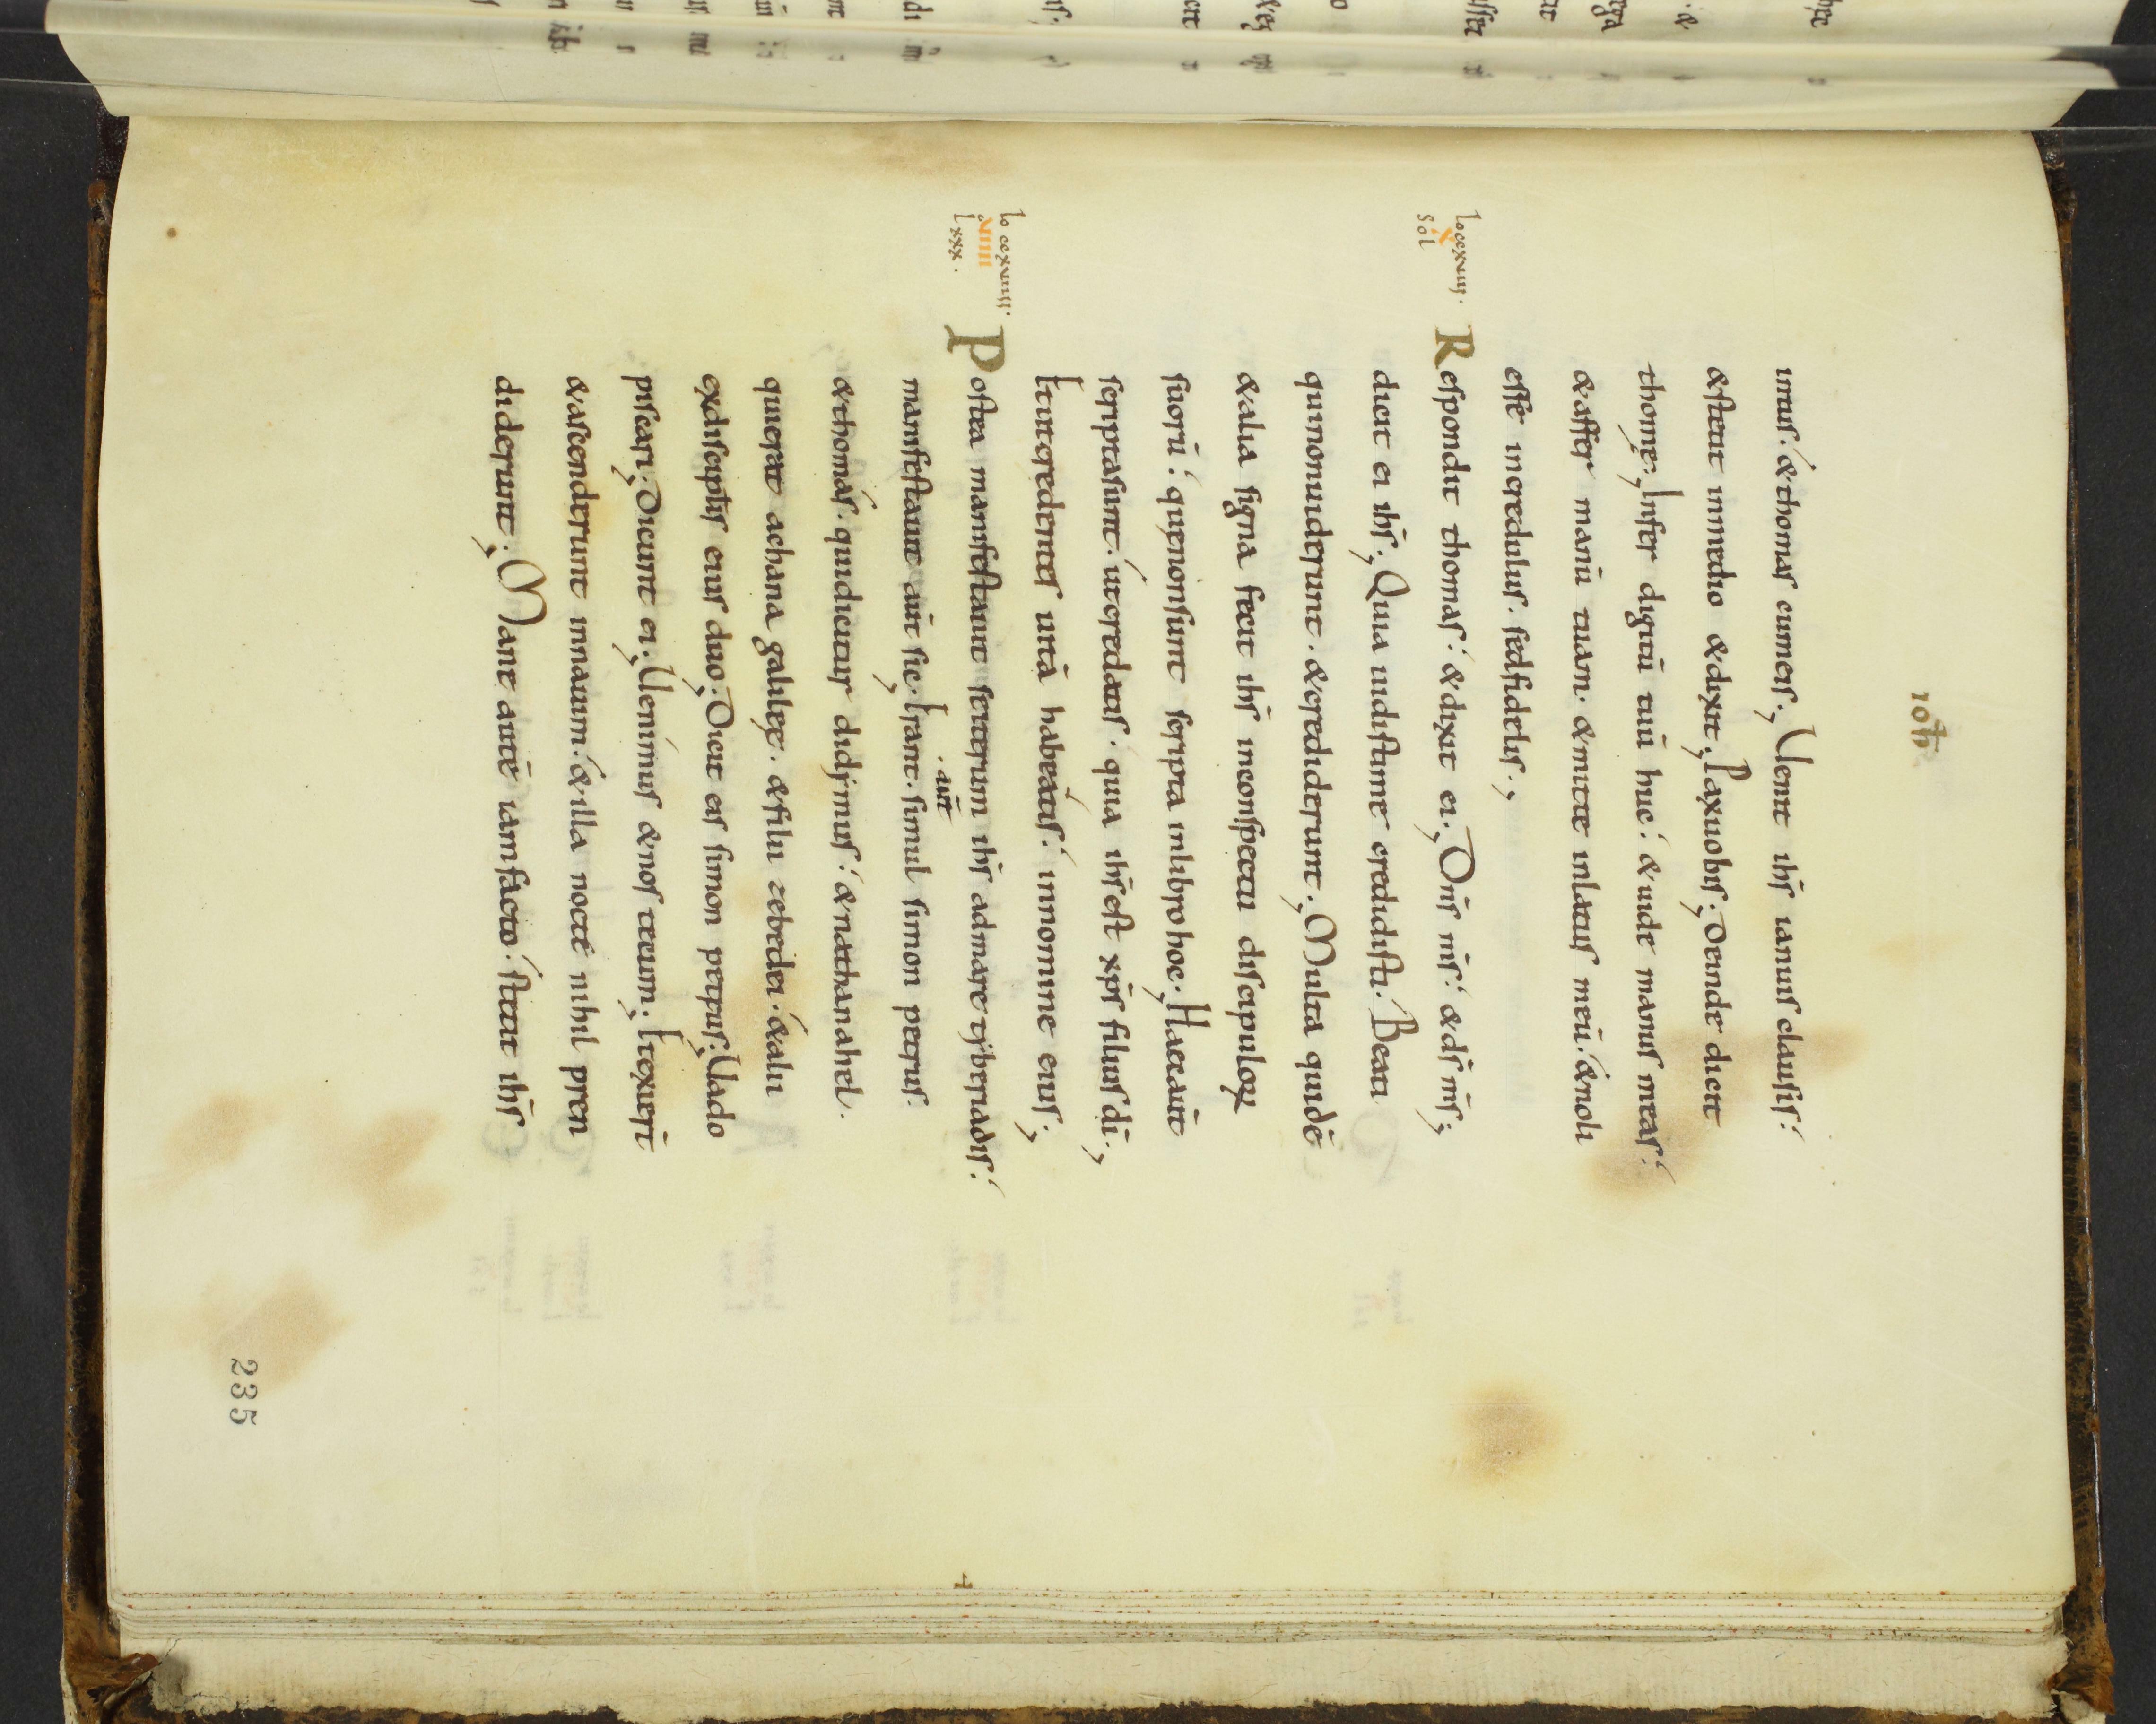 ioh̄
intuſ. &thomas cumeiſ; Uenit ih̄ſ ianuiſ clauſiſ.
&ſtetit inmedio &dixit; Paxuobiſ; Deinde dicit
thomę; Infer digitū tuū huc. &uide manuſ meaſ.
&affer manū tuam. &mitte inlatuſ meū. &noli
eſſe increduluſ. ſedfideliſ;
lo ccxviiii.
X
sol
Reſpondit thomaſ. &dixit ei; Dn̄ſ m̄ſ. &dſ̄ m̄ſ;
dicit ei ih̄ſ; Quia uidiſtime credidiſti. Beati
quinonuiderunt. &crediderunt; Multa quidē
&alia ſigna fecit ih̄ſ inconſpectu diſcipuloꝝ
ſuorū. quęnonſunt ſcripta inlibro hoc; Haecaūt
ſcriptaſunt. utcredatiſ. quia ih̄ſ eſt xp̄ſ filiuſ dī;
Etutcredenteſ uitā habeatiſ. innomine eiuſ;
lo ccxviiii.
VIIII
lxxx.
Poſtea manifeſtauit ſeiterum ih̄ſ admare tẏberiadiſ.
manifeſtauit aūt ſic; Erant .aūt. ſimul ſimon petruſ.
&thomáſ. quidicitur didẏmuſ. &nathanahel.
quierat achana galileę. &filii zebedei. &alii
exdiſcipliſ eiuſ duo; Dicit eiſ ſimon petruſ; Uado
piſcari; Dicunt ei; Uenimuſ &noſ tecum; Etexier̄t
&aſcenderunt innauim. &illa nocte nihil pren
diderunt; Mane autē iamfacto. ſtetit ih̄ſ
235